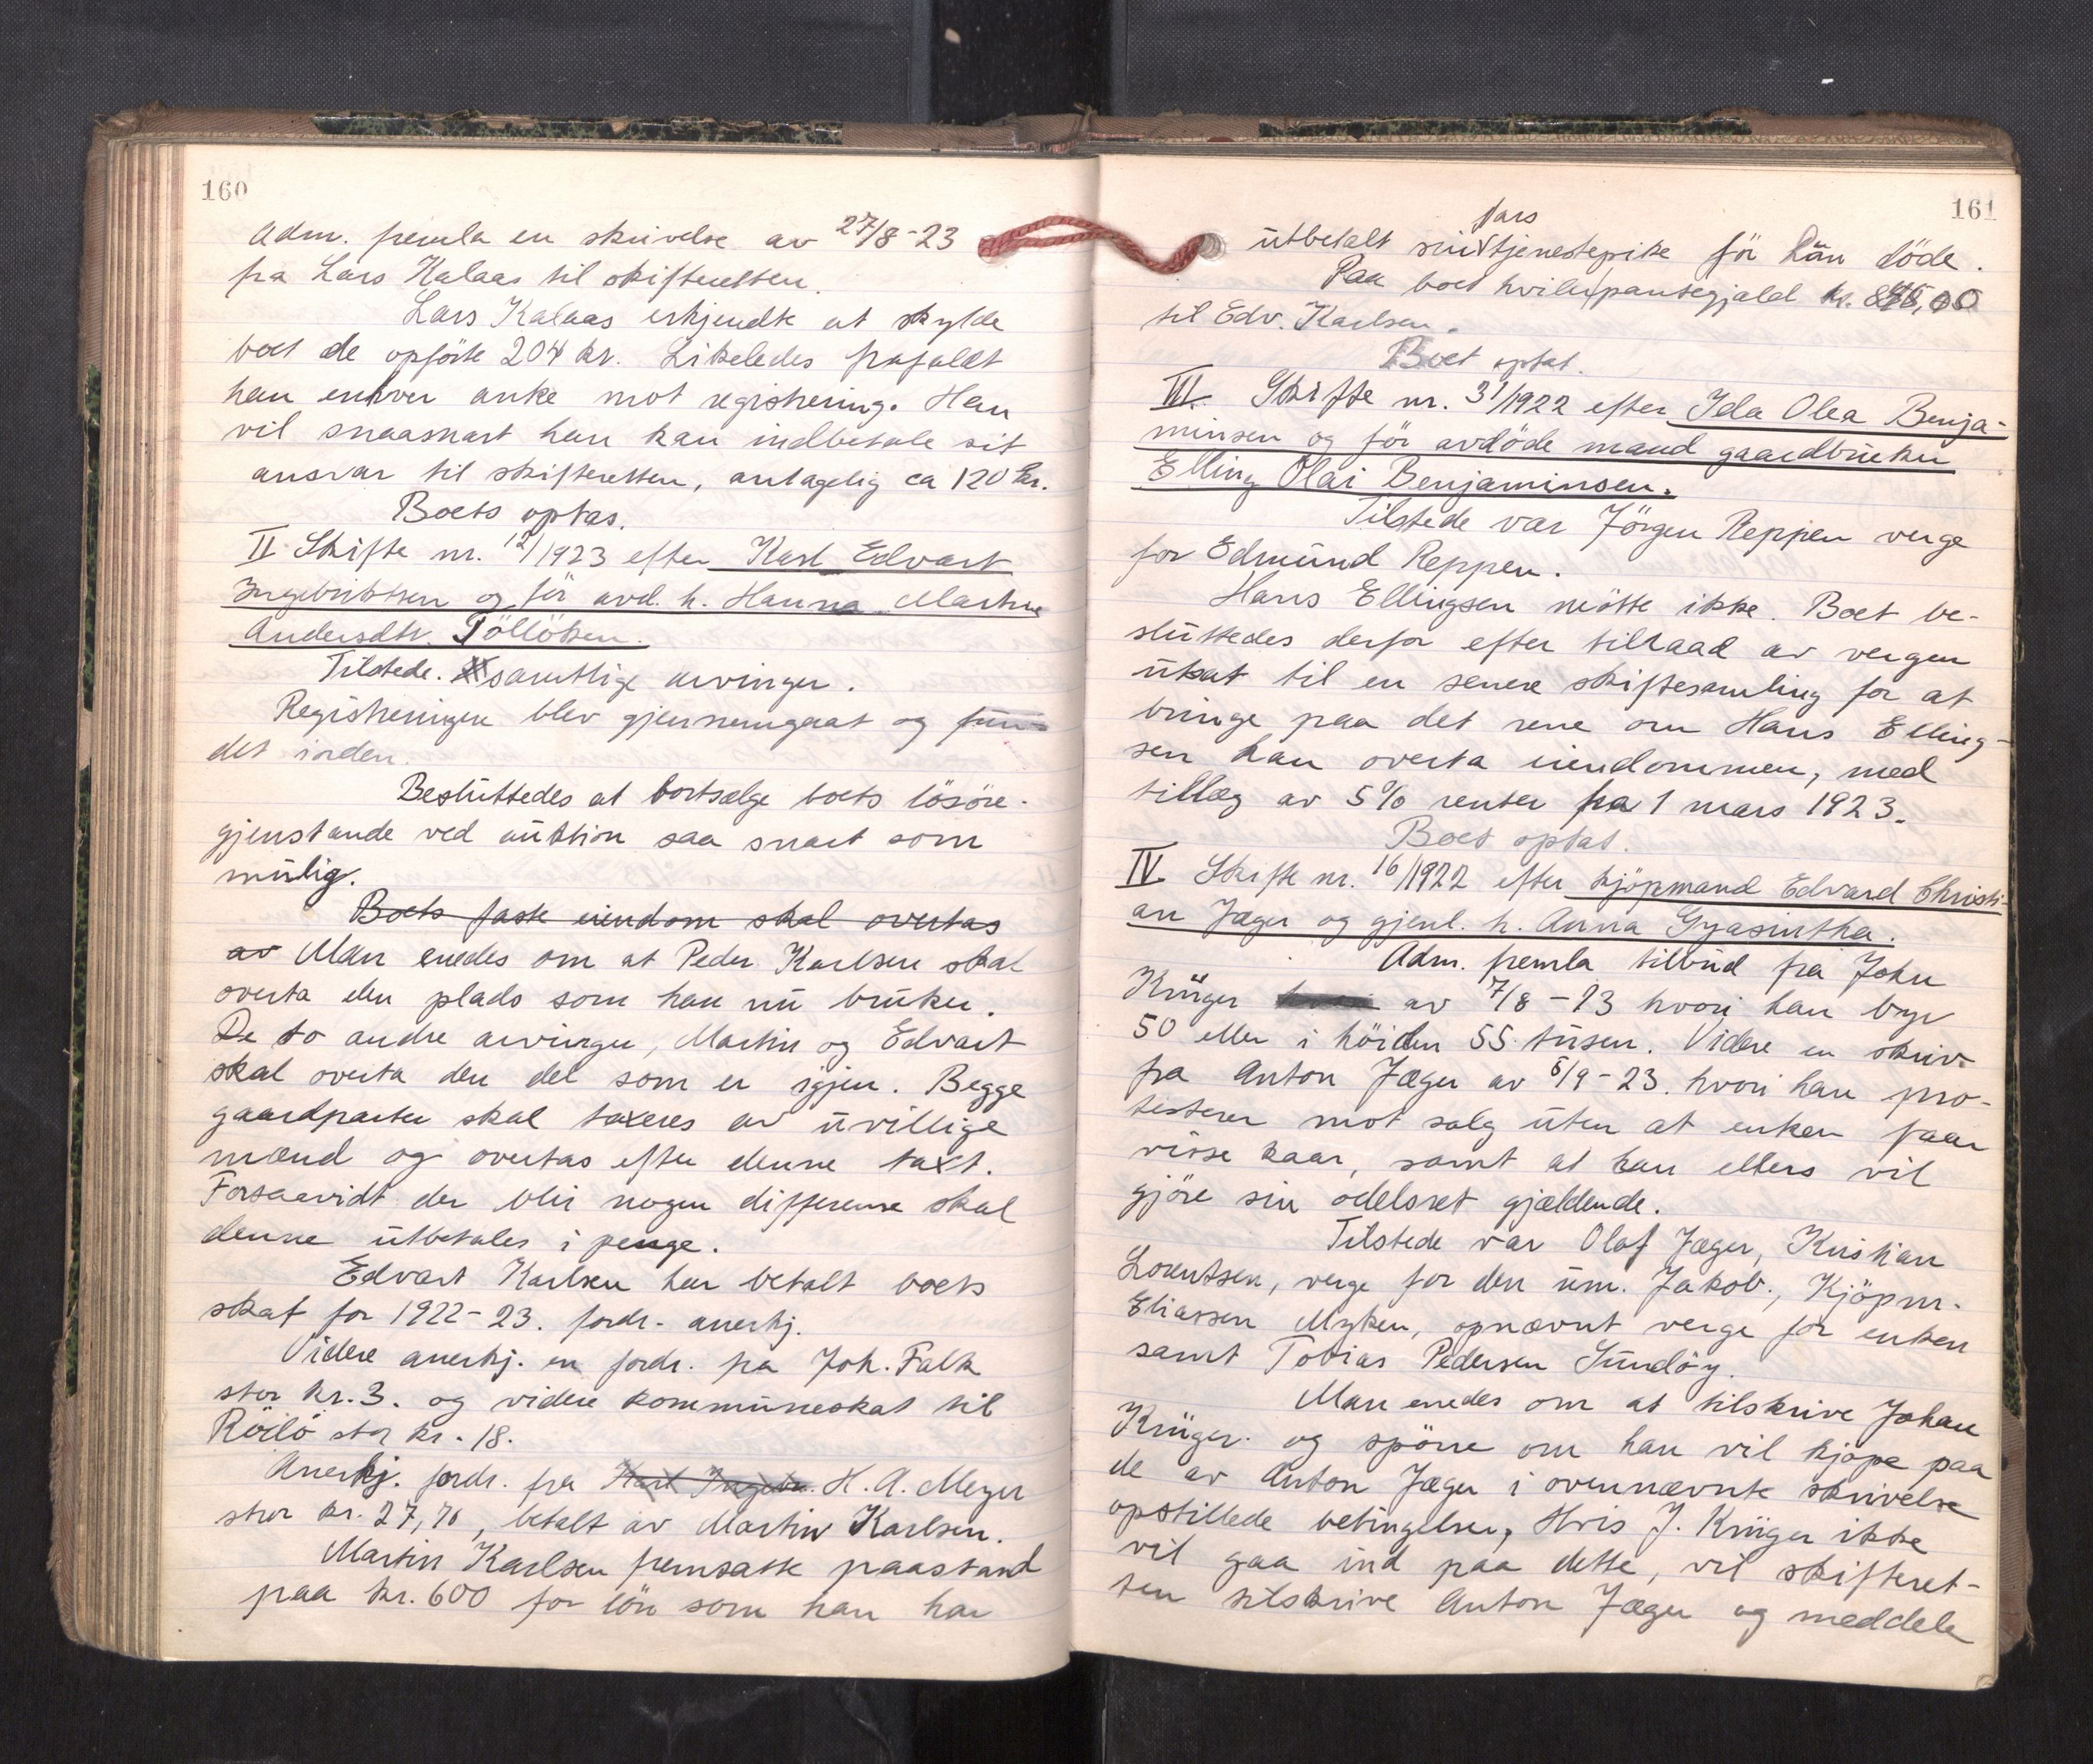 160
Adm. fremla en skrivelse av 27/8-23
fra Lars Kalaas til skifteretten.
Lars Kalaas erkjendte at skylde
boet de opförte 204 kr. Likeledes frafaldt
han enhver anke mot registrering. Han
vil snaasnart han kan indbetale sit
ansvar til skifteretten, antagelig ca 120 kr.
Boets optas.
II Skifte nr. 12/1923 efter Karl Edvart
Ingebriktsen og för avd. h. Hanna Martine
Andersdtr. Töllöken.
Tilstede. samtlige arvinger.
Registreringen blev gjennemgaat og fun-
det iorden.
Besluttedes at bortsælge boets lösöre-
gjenstande ved auktion saa snart som
mulig.
Boets faste eiendom skal overtas
av Man enedes om at Peder Karlsen skal
overta den plads som han nu bruker.
De to andre arvinger, Martin og Edvart
skal overta den del som er igjen. Begge
gaardparter skal taxeres av uvillige
mænd og overtas efter denne taxt.
Forsaavidt der blir nogen differense skal
denne utbetales i penge.
Edvart Karlsen har betalt boets
skat for 1922-23. fordr. anerkj.
Videre anerkj. en fordr. fra Joh. Falk
stor kr. 3. og videre kommuneskat til
Rödö stor kr. 18.
Anerkj. fordr. fra Karl Ingebr. H. A. Meyer
stor kr. 27,76, betalt av Martin Karlsen.
Martin Karlsen fremsatte paastand
paa kr. 600 for lön som han har
161
fars
utbetalt sin tjenestepike för han döde.
Paa boet hviler pantegjæld kr.
til Edv. Karlsen.
Boet optat.
III. Skifte nr. 31/1922 efter Ida Olea Benja-
minsen og för avdöde mand gaardbruker
Elling Olai Benjaminsen.
Tilstede var Jörgen Reppen verge
for Edmund Reppen.
Hans Ellingsen mötte ikke. Boet be-
sluttedes derfor efter tilraad av vergen
utsat til en senere skiftesamling for at
bringe paa det rene om Hans Elling-
sen kan overta eiendommen, med
tillæg av 5% renter fra 1 mars 1923.
Boet optat.
IV. Skifte nr. 16/1922 efter kjöpmand Edvard Christi-
an Jæger og gjenl. h. Anna Gyasintha.
Adm. fremla tilbud fra John
Krüger av 7/8-23 hvori han byr
50 eller i höiden 55 tusen. Videre en skriv.
fra Anton Jæger av 5/9-23. hvori han pro-
testerer mot salg uten at enken faar
visse kaar, samt at han ellers vil
gjöre sin odelsret gjældende.
Tilstede var Olaf Jæger, Kristian
Lorentsen, verge for den um. Jakob., Kjöpm.
Eliassen Myken, opnævnt verge for enken
samt Tobias Pedersen Sundöy.
Man enedes om at tilskrive Johan
Krüger og spörre om han vil kjöpe paa
de av Anton Jæger i ovennævnte skrivelse
opstillede betingelser, Hvis J. Krüger ikke
vil gaa ind paa dette, vil skifteret-
ten tilskrive Anton Jæger og meddele